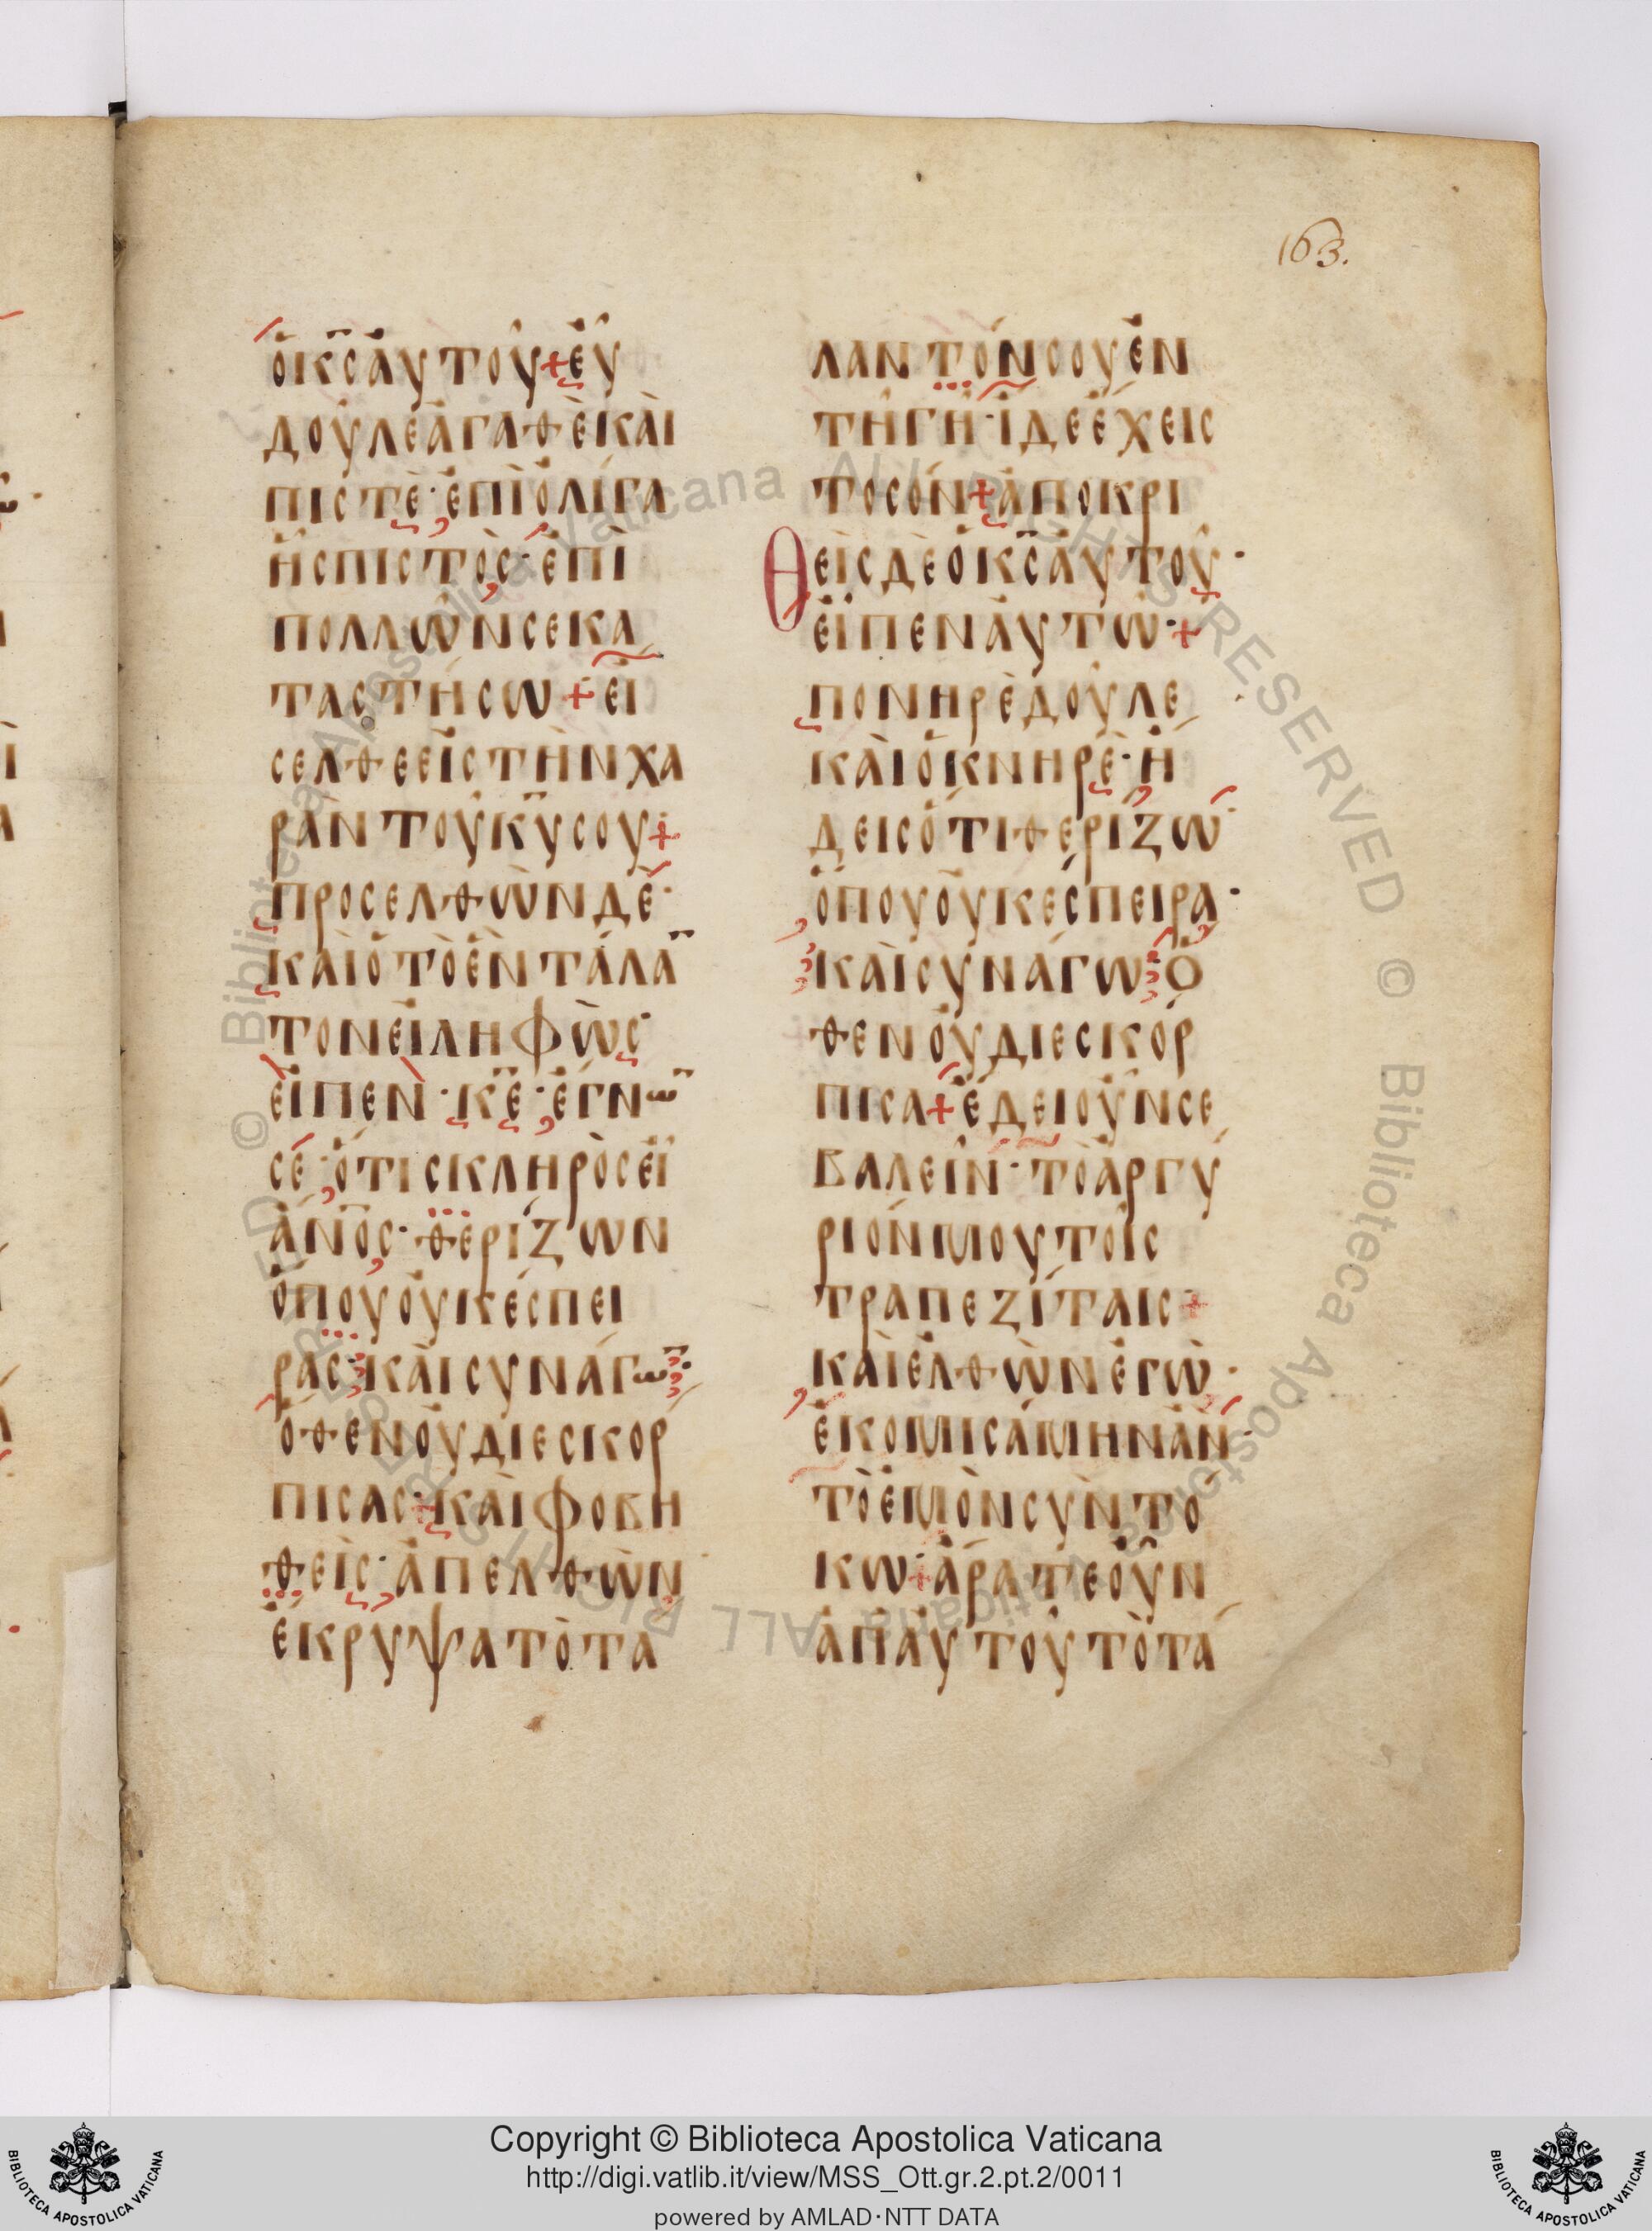 163.
ὁ κ̅ς̅ ἀυτοῦ + ἐῦ
δοῦλε ἀγαθὲ κὰι
πιστὲ · ἐπὶ ὀλίγα
ἦς πιστὸς · ἐπὶ
πολλῶν σε κα
ταστήσω + εἴ
σελθε εἰς τὴν χα
ρὰν τοῦ κ̅υ̅ σου +
προσελθὼν δέ ·
κὰι ὁ τὸ ἓν τάλα
τον εἰληφὼς
εἶπεν · κ̅ε̅ · ἔγνω
σέ · ὅτι σκληρὸς εἶ
ἀν̅ο̅ς · θερίζων
ὅπου οὐκ έσπει
ρας · κὰι συνάγω ·
ὅθεν οὐ διεσκορ
πισας · κὰι φοβη
θεὶς · ἀπελθὼν
ἔκρυψα τὸ τα
λαντόν σου ἐν
τῆ γῆ · ἴδε ἔχεις
το σόν + ἀποκρι
θεὶς δὲ ὁ κ̅ς̅ ἀυτοῦ ·
εἶπεν ἀυτῶ · +
πονηρὲ δοῦλε
κὰι ὀκνηρὲ · ἤ
δεις ὅτι θερίζω ·
ὅπου οὐκ έσπειρα ·
κὰι συνάγω · ὅ
θεν οὐ διεσκόρ
πισα + ἔδει οὖν σε
βαλεῖν · τὸ ἀργύ
ριόν μου τοῖς
τραπεζίταις +
κὰι ἐλθὼν ἐγὼ ·
ἐκομισάμην ἂν ·
τὸ ἐμὸν σὺν τό
κω · + ἄρατε οὖν
ἀπ ἀυτοῦ τὸ τά
© Biblioteca Apostolica Vaticana ALL RIGHTS RESERVED © Biblioteca Apostolica Vaticana ALL RIGHTS RESERVED
Copyright © Biblioteca Apostolica Vaticana
http://digi.vatlib.it/view/MSS_Ott.gr.2.pt.2/0011
powered by AMLAD·NTT DATA
BIBLIOTECA APOSTOLICA VATICANA
BIBLIOTECA APOSTOLICA VATICANA